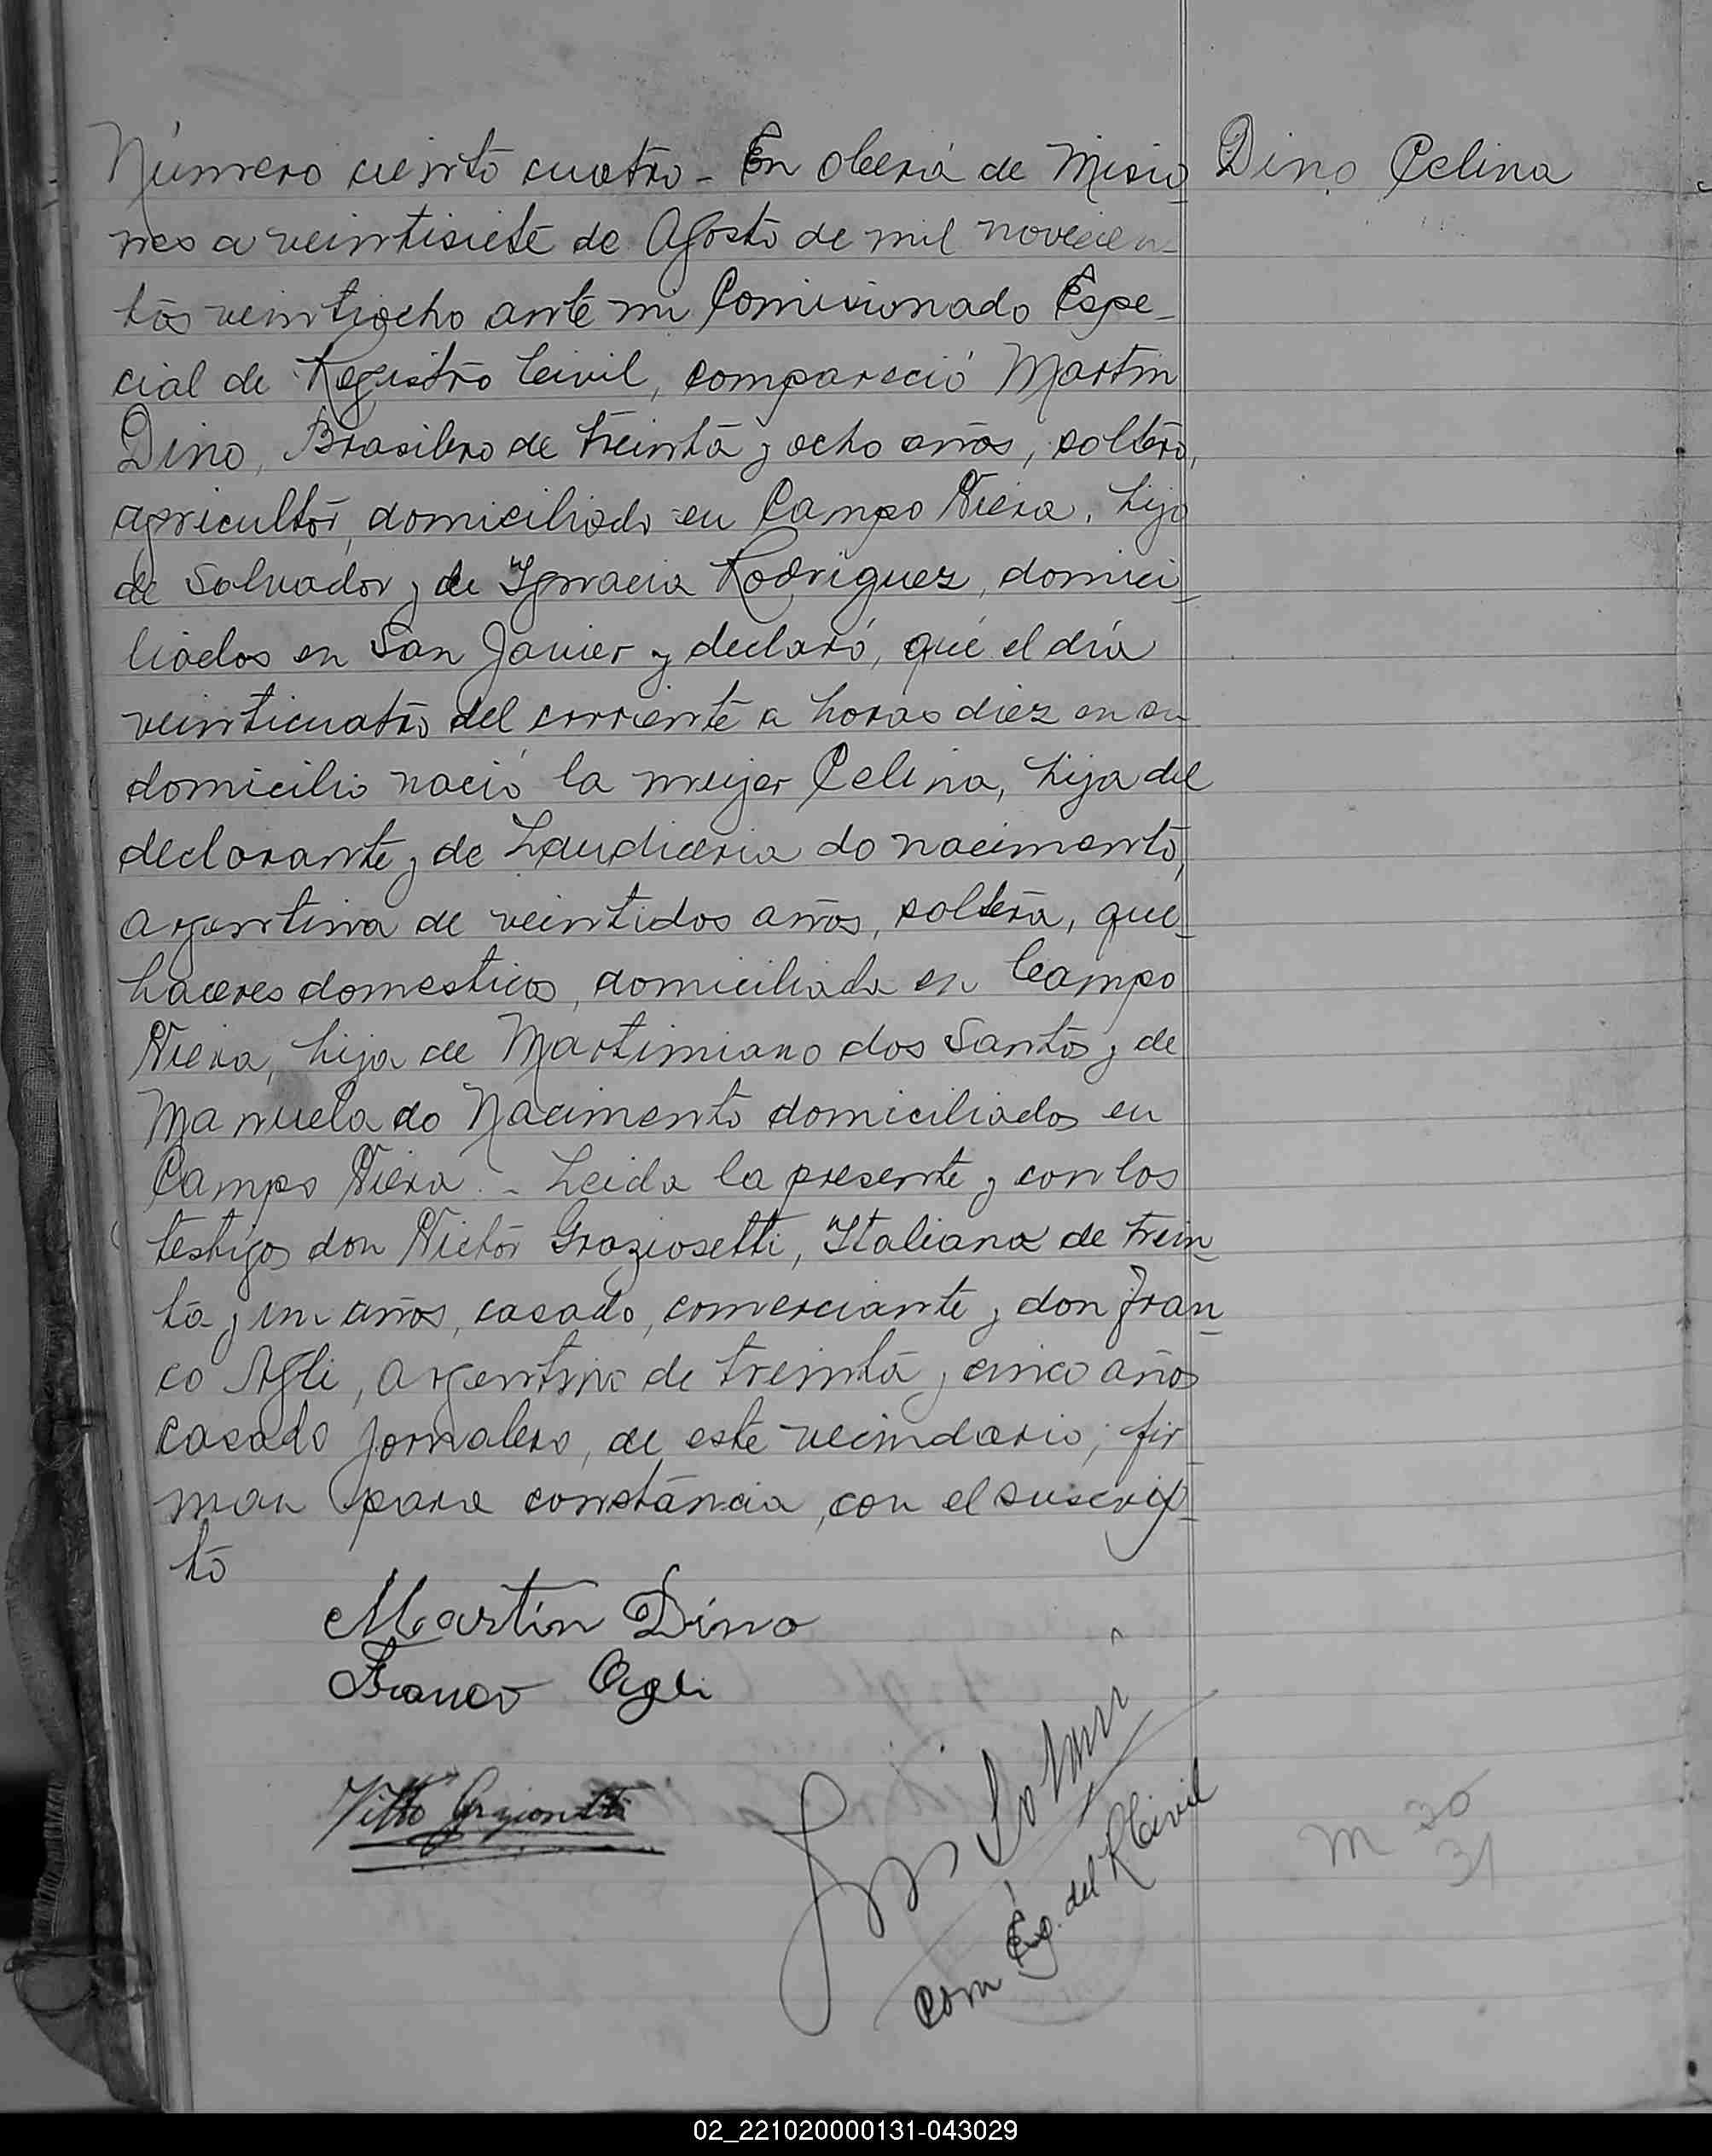 Número ciento cuatro - En Oberá de Misio_ Dino Celina
nes a veintisiete de Agosto de mil novecien_
tos veintiocho ante mi Comisionado Espe_
cial de Registro Civil, compareció Martin
Dino, Brasilero de treinta y ocho años, soltero,
agricultor, domiciliado en Campo Viera, hijo
de Salvador y de Ignacia Rodriguez, domici_
liados en San Javier y declaró, que el día
veinticuatro del corriente a horas diez en su
domicilio nació la mujer Celina, hija del
declarante y de Laudiceria do nacimento,
argentina de veintidos años, soltera, que_
haceres domesticos, domiciliada en Campo
Viera, hija de Martimiano dos Santos y de
Manuela do Nacimento domiciliados en
Campo Viera. - Leida la presente y con los
testigos don Victor Graziosetti, Italiano de trein_
ta y un años, casado, comerciante y don Fran_
co Agli, argentino de treinta y cinco años
casado jornalero, de este vecindario, fir_
man para constancia, con el suscrip_
to
Martin Dino
Franco Agli
Com Esp. del R Civil
M 30
31
02_221020000131-043029